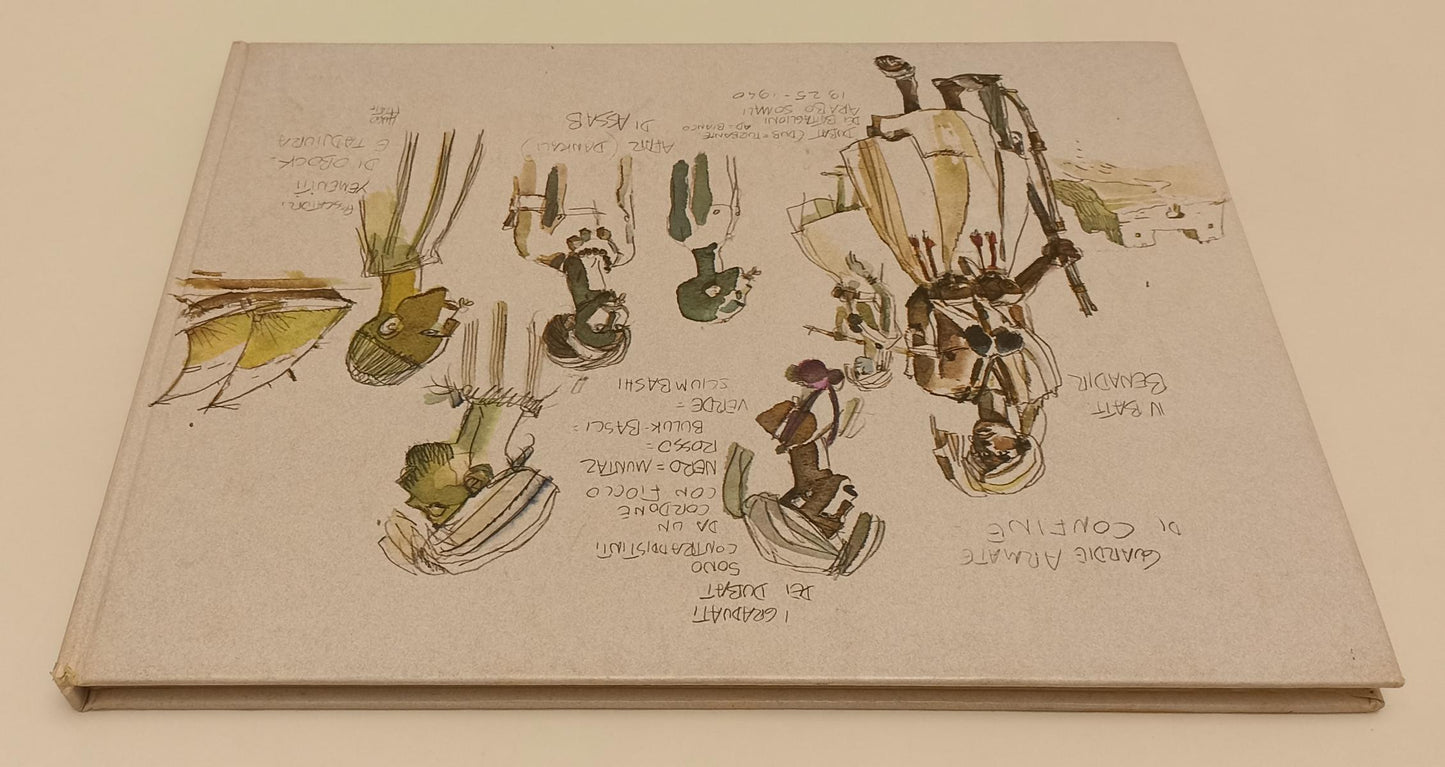 GUARDIE ARMATE
DI CONFINE -
I GRADUATI
DEI DUBAT
SONO
CONTRADDISTINTI
DA UN
CORDONE
CON FIOCCO
NERO = MUNTAZ
ROSSO =
BULUK-BASCI =
VERDE =
SCIUMBASHI
IV BATT
BENADIR
DUBAT (DUB = TORBANTE
AD = BIANCO
DEI BATTAGLIONI
ARABO SOMALI
1925-1940
AFAR (DANKALI)
DI ASSAB
PESCATORI
YEMENITI
DI OBOCK
E TADJIURA
HUGO
PRATT